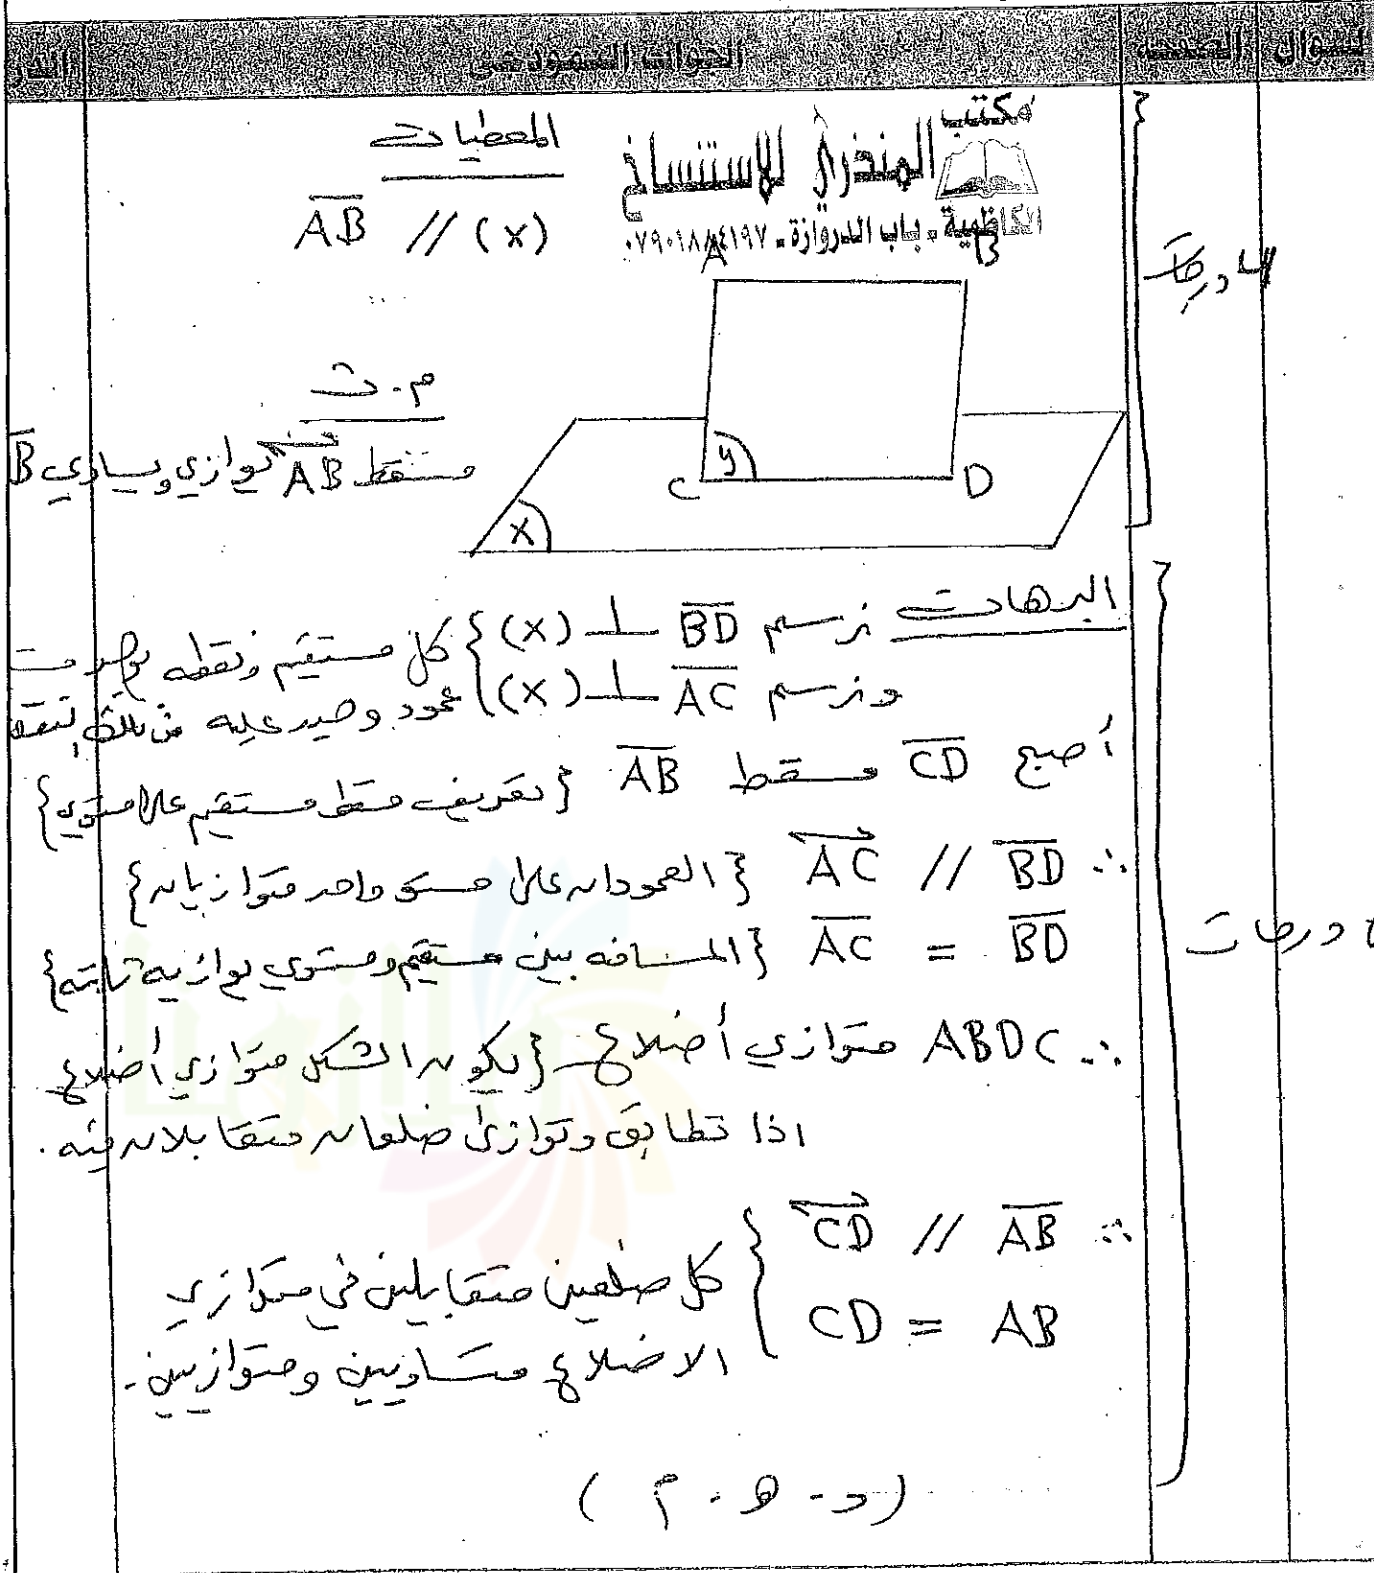 السؤال الصفحة الجواب النموذجي الدر
مكتب
المنذري للإستنساخ
الكاظمية - باب الدروازة - ٠٧٩٠١٨٨٤١٩٧
المعطيات
AB // (x)
A B
٤ درجات
م. ث
مسقط AB يوازي ويساوي B
C y D
x
البرهان نرسم BD ⊥ (x) } كل مستقيم ونقطه يوجد
ونرسم AC ⊥ (x) } عمود وحيد عليه من تلك النقط
أصبح CD مسقط AB {تعريف مسقط مستقيم على مستوي}
∴ BD // AC {العمودان على مستو واحد متوازيان}
BD = AC {المسافه بين مستقيم ومستوي يوازيه ثابته}
درجات
∴ ABDC متوازي أضلاع {يكون الشكل متوازي أضلاع
اذا تطابق وتوازى ضلعان متقابلان فيه.
∴ AB // CD
AB = CD
} كل ضلعين متقابلين في متوازي
الاضلاع متساويين ومتوازيين.
(و. هـ. م)